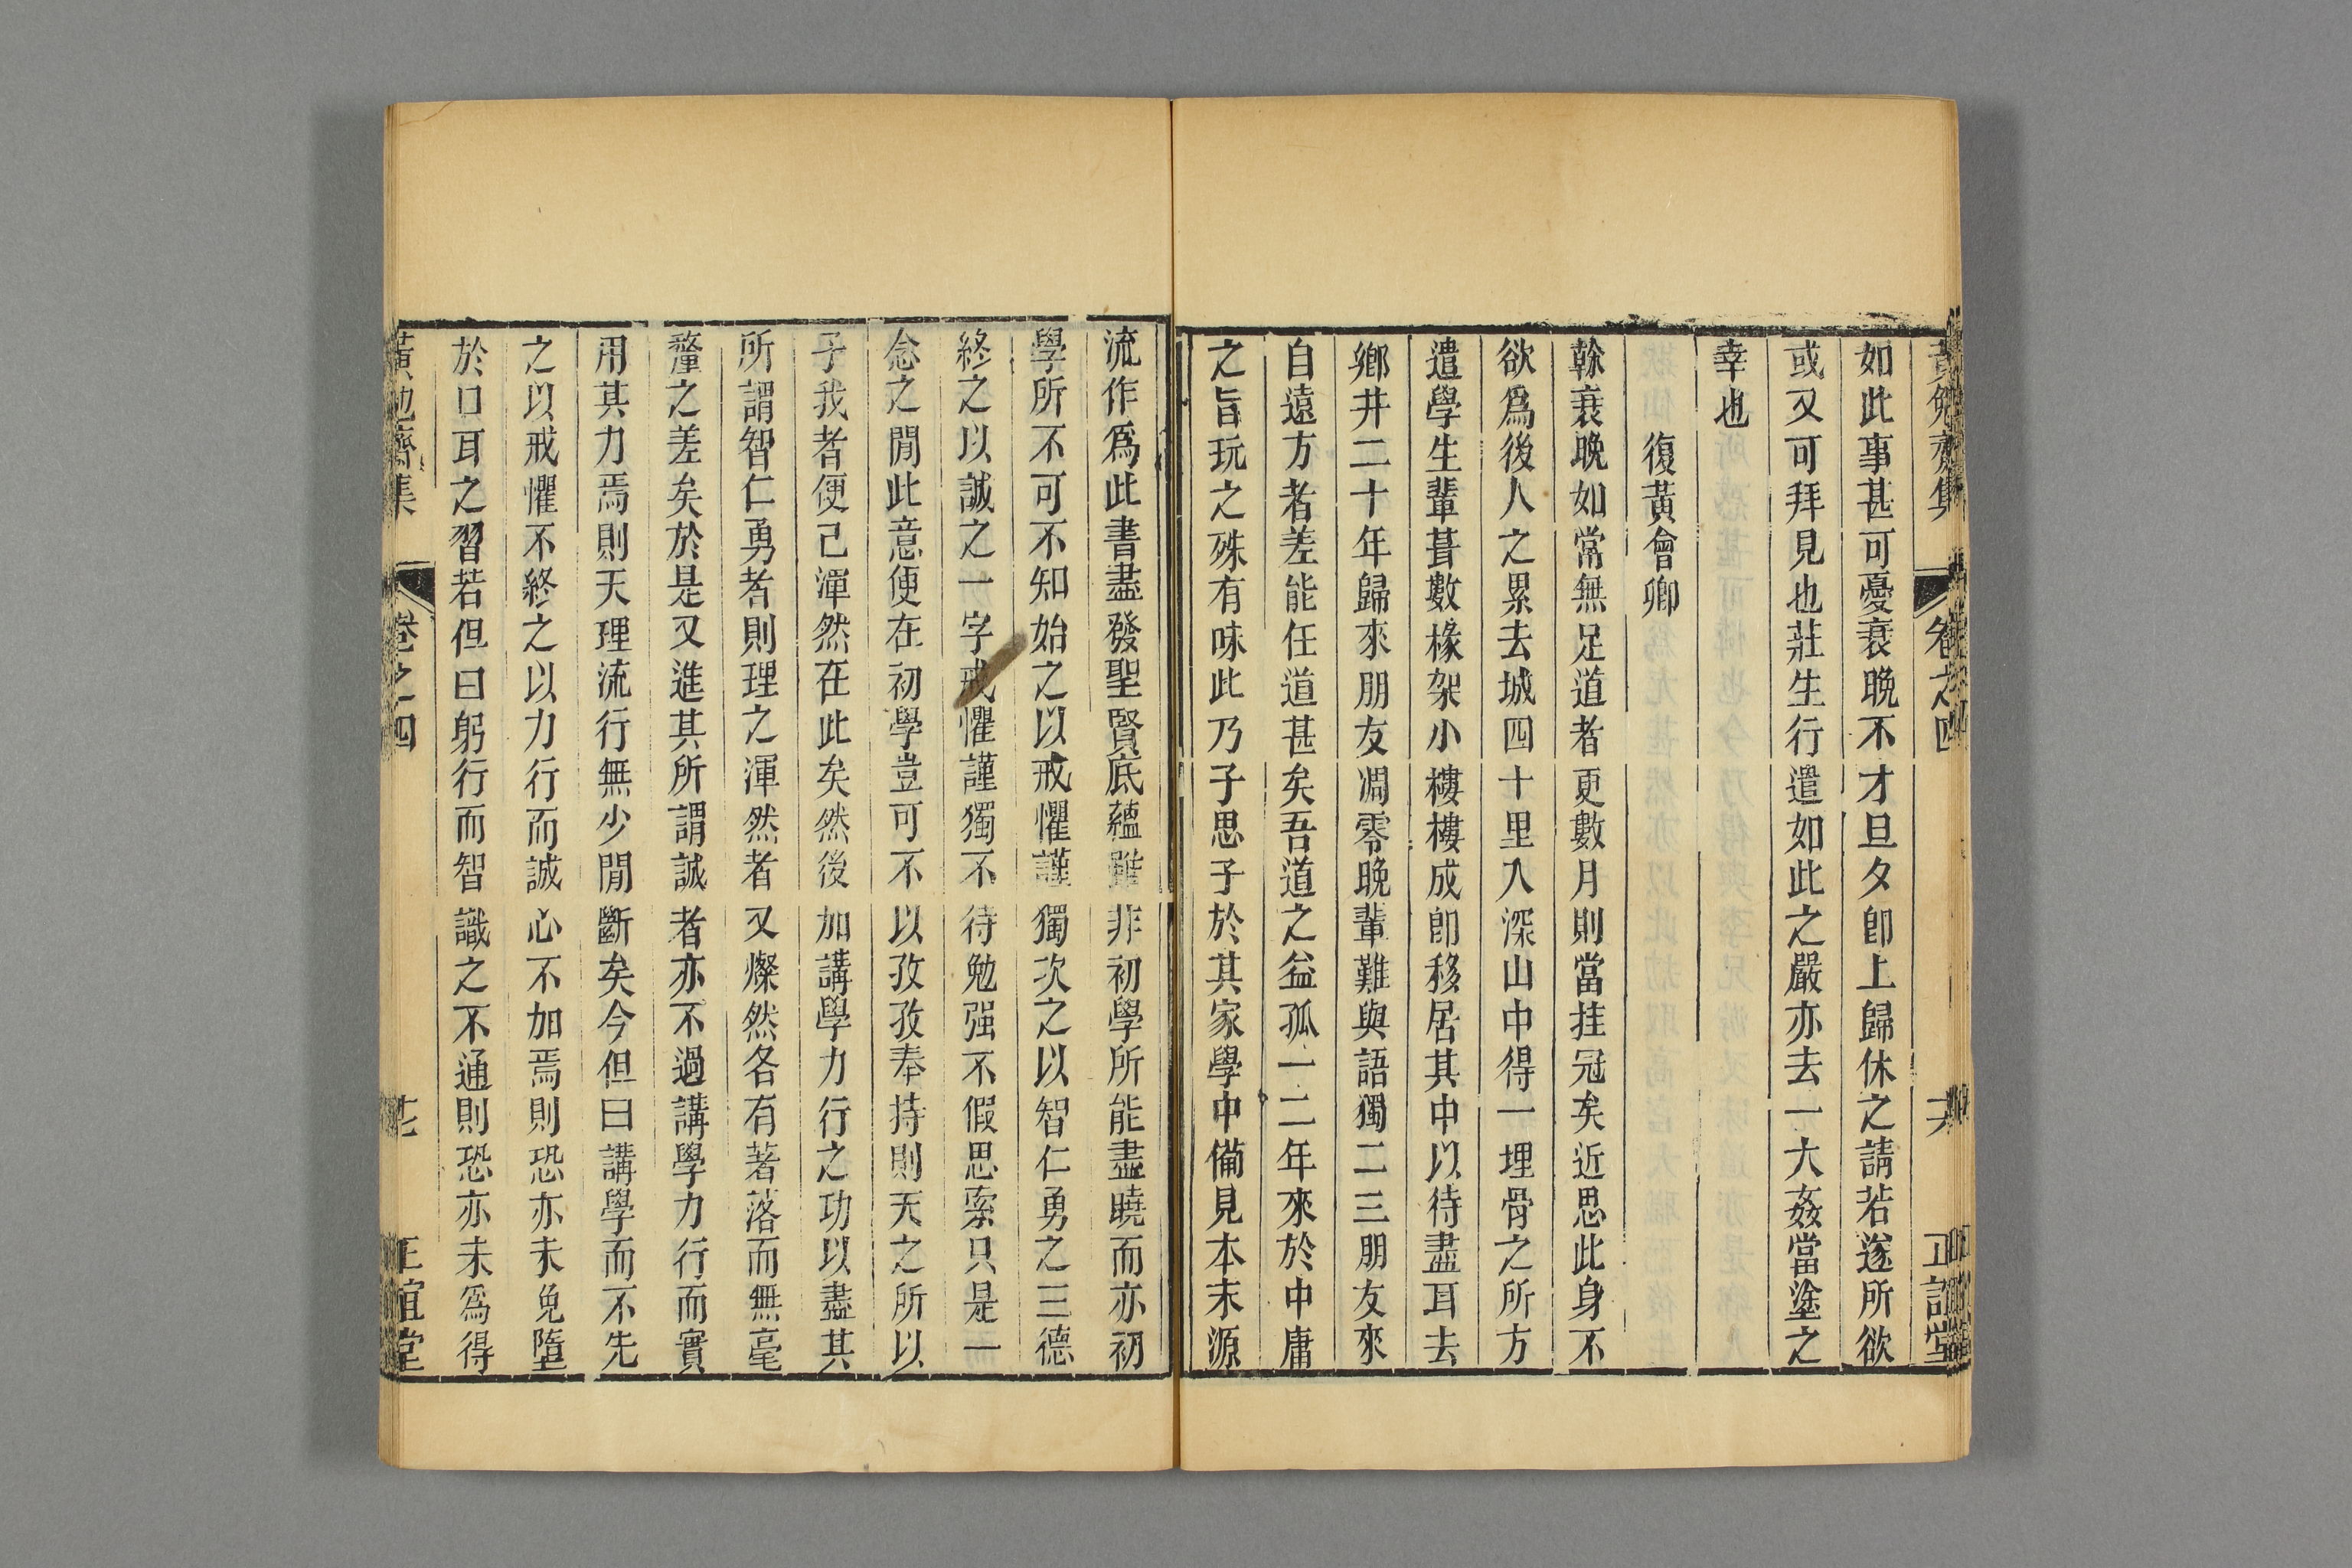 黃勉齋集 卷之四 六 正誼堂
如此事甚可憂衰晚不才旦夕卽上歸休之請若遂所欲
或又可拜見也莊生行遣如此之嚴亦去一大姦當塗之
幸也
復黃會卿
榦衰晚如常無足道者更數月則當挂冠矣近思此身不
欲爲後人之累去城四十里入深山中得一埋骨之所方
遣學生輩葺數椽架小樓樓成卽移居其中以待盡耳去
鄉井二十年歸來朋友凋零晚輩難與語獨二三朋友來
自遠方者差能任道甚矣吾道之益孤一二年來於中庸
之旨玩之殊有味此乃子思子於其家學中備見本末源
流作爲此書盡發聖賢底蘊雖非初學所能盡曉而亦初
學所不可不知始之以戒懼謹獨次之以智仁勇之三德
終之以誠之一字戒懼謹獨不待勉强不假思索只是一
念之閒此意便在初學豈可不以孜孜奉持則天之所以
予我者便已渾然在此矣然後加講學力行之功以盡其
所謂智仁勇者則理之渾然者又燦然各有著落而無毫
釐之差矣於是又進其所謂誠者亦不過講學力行而實
用其力焉則天理流行無少閒斷矣今但曰講學而不先
之以戒懼不終之以力行而誠心不加焉則恐亦未免墮
於口耳之習若但曰躬行而智識之不通則恐亦未爲得
黃勉齋集 卷之四 正誼堂